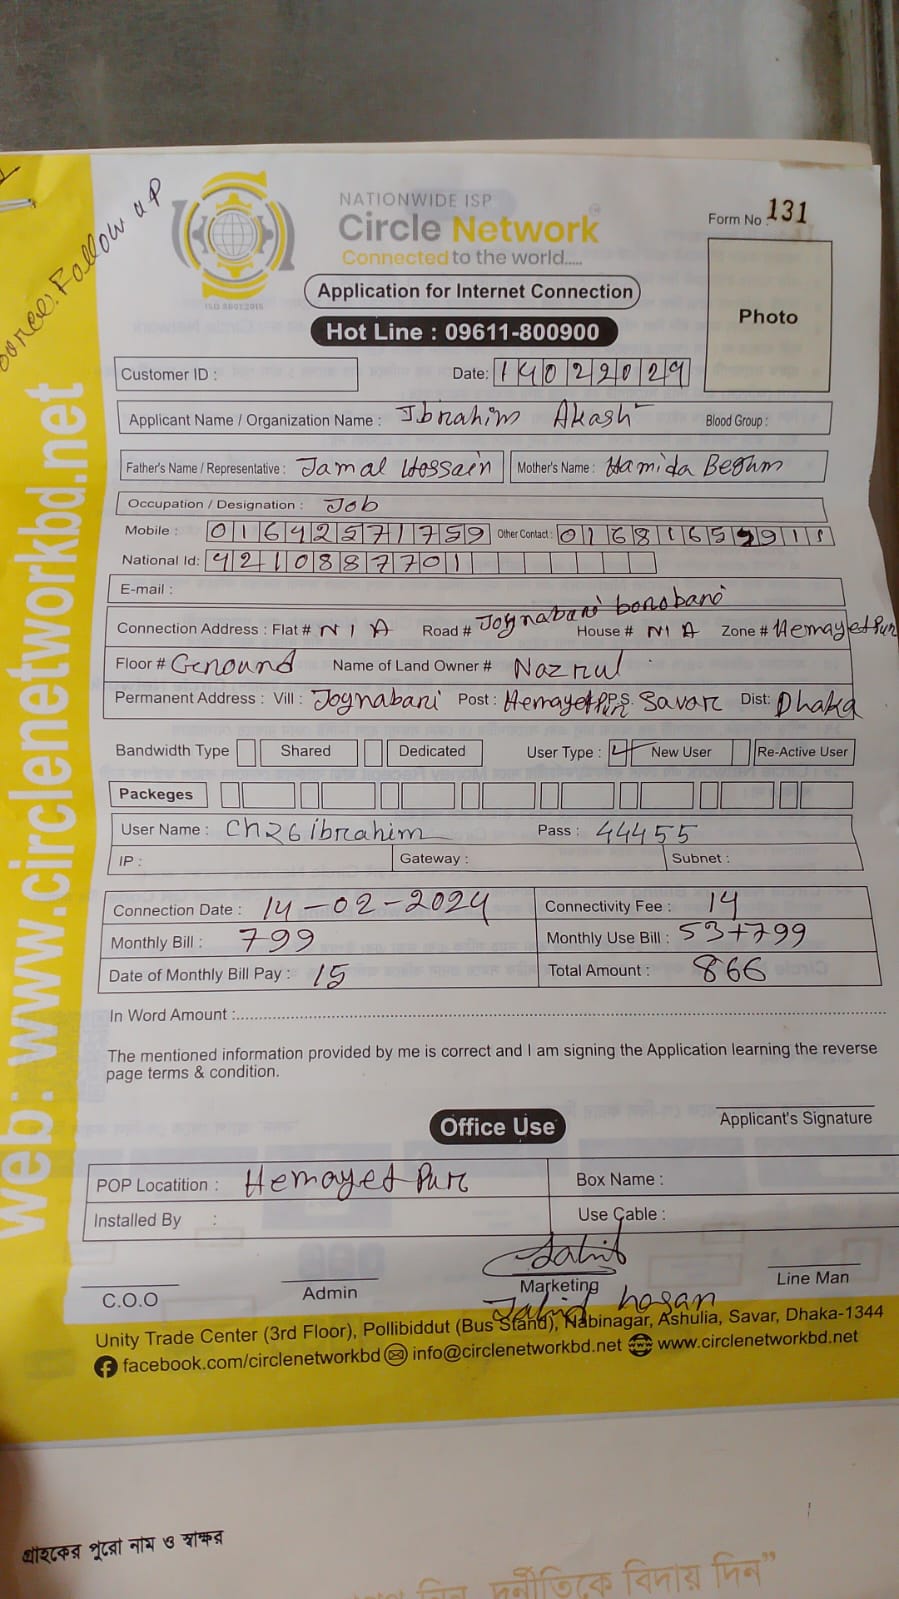 Source: Follow up
NATIONWIDE ISP
Circle Network
Connected to the world.....
ISO 9001:2015
Form No : 131
Application for Internet Connection
Hot Line : 09611-800900
Photo
Customer ID :
Date: 14022024
Applicant Name / Organization Name : Ibrahim Akash Blood Group :
Father's Name / Representative : Jamal Hossain Mother's Name : Hamida Begum
Occupation / Designation : Job
Mobile : 01642571759 Other Contact :
National Id: 4210887701
E-mail :
Connection Address : Flat # N I A Road # Joynabari bonobari House # N I A Zone # Hemayetpur
Floor # Ground Name of Land Owner # Nazrul
Permanent Address : Vill : Joynabari Post : Hemayetpur P.S. Savar Dist: Dhaka
Bandwidth Type Shared Dedicated User Type : New User Re-Active User
Packeges
User Name : Ch26ibrahim Pass : 44455
IP : Gateway : Subnet :
Connection Date : 14-02-2024 Connectivity Fee : 14
Monthly Bill : 799 Monthly Use Bill : 53+799
Date of Monthly Bill Pay : 15 Total Amount : 866
In Word Amount :
The mentioned information provided by me is correct and I am signing the Application learning the reverse
page terms & condition.
Applicant's Signature
Office Use
POP Locatition : Hemayet Pur Box Name :
Installed By : Use Cable :
C.O.O Admin Marketing Line Man
hosan
Unity Trade Center (3rd Floor), Pollibiddut (Bus Stand), Nabinagar, Ashulia, Savar, Dhaka-1344
facebook.com/circlenetworkbd info@circlenetworkbd.net www.circlenetworkbd.net
web: www.circlenetworkbd.net
গ্রাহকের পুরো নাম ও স্বাক্ষর
দিন, দুর্নীতিকে বিদায় দিন”